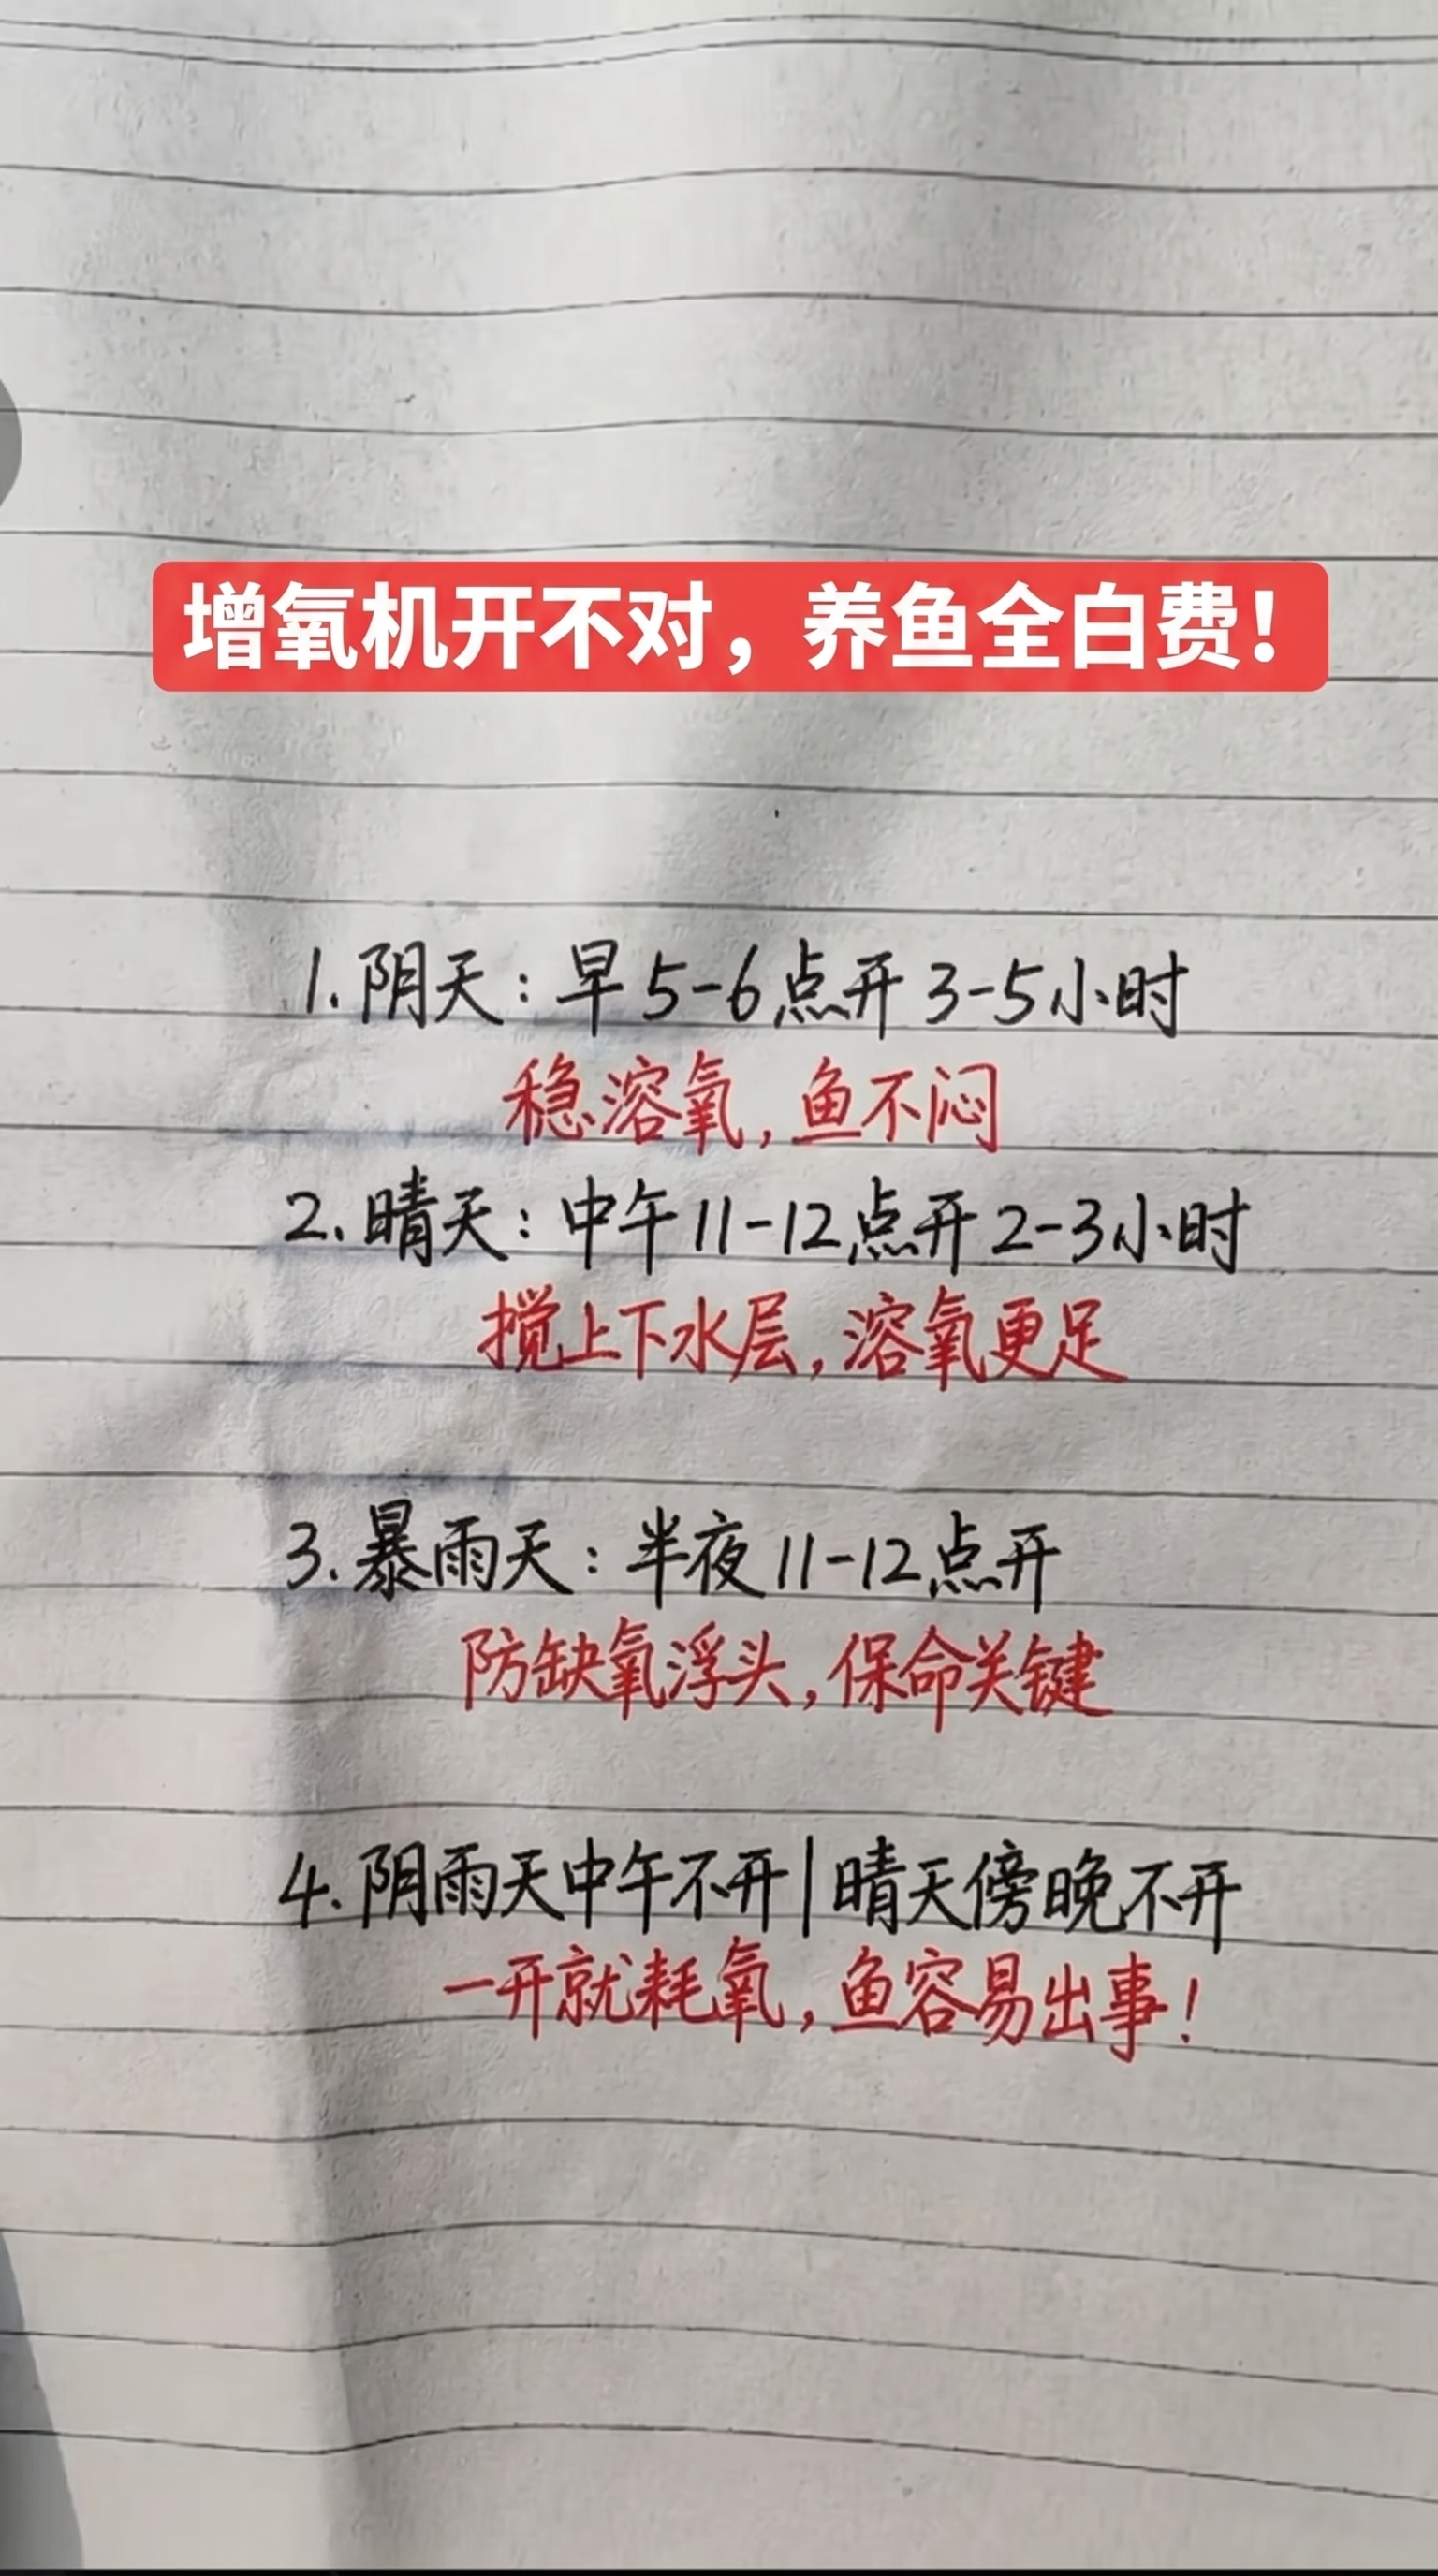 增氧机开不对，养鱼全白费！
1.阴天：早5-6点开3-5小时
稳溶氧，鱼不闷
2.晴天：中午11-12点开2-3小时
搅上下水层，溶氧更足
3.暴雨天：半夜11-12点开
防缺氧浮头，保命关键
4.阴雨天中午不开|晴天傍晚不开
一开就耗氧，鱼容易出事！